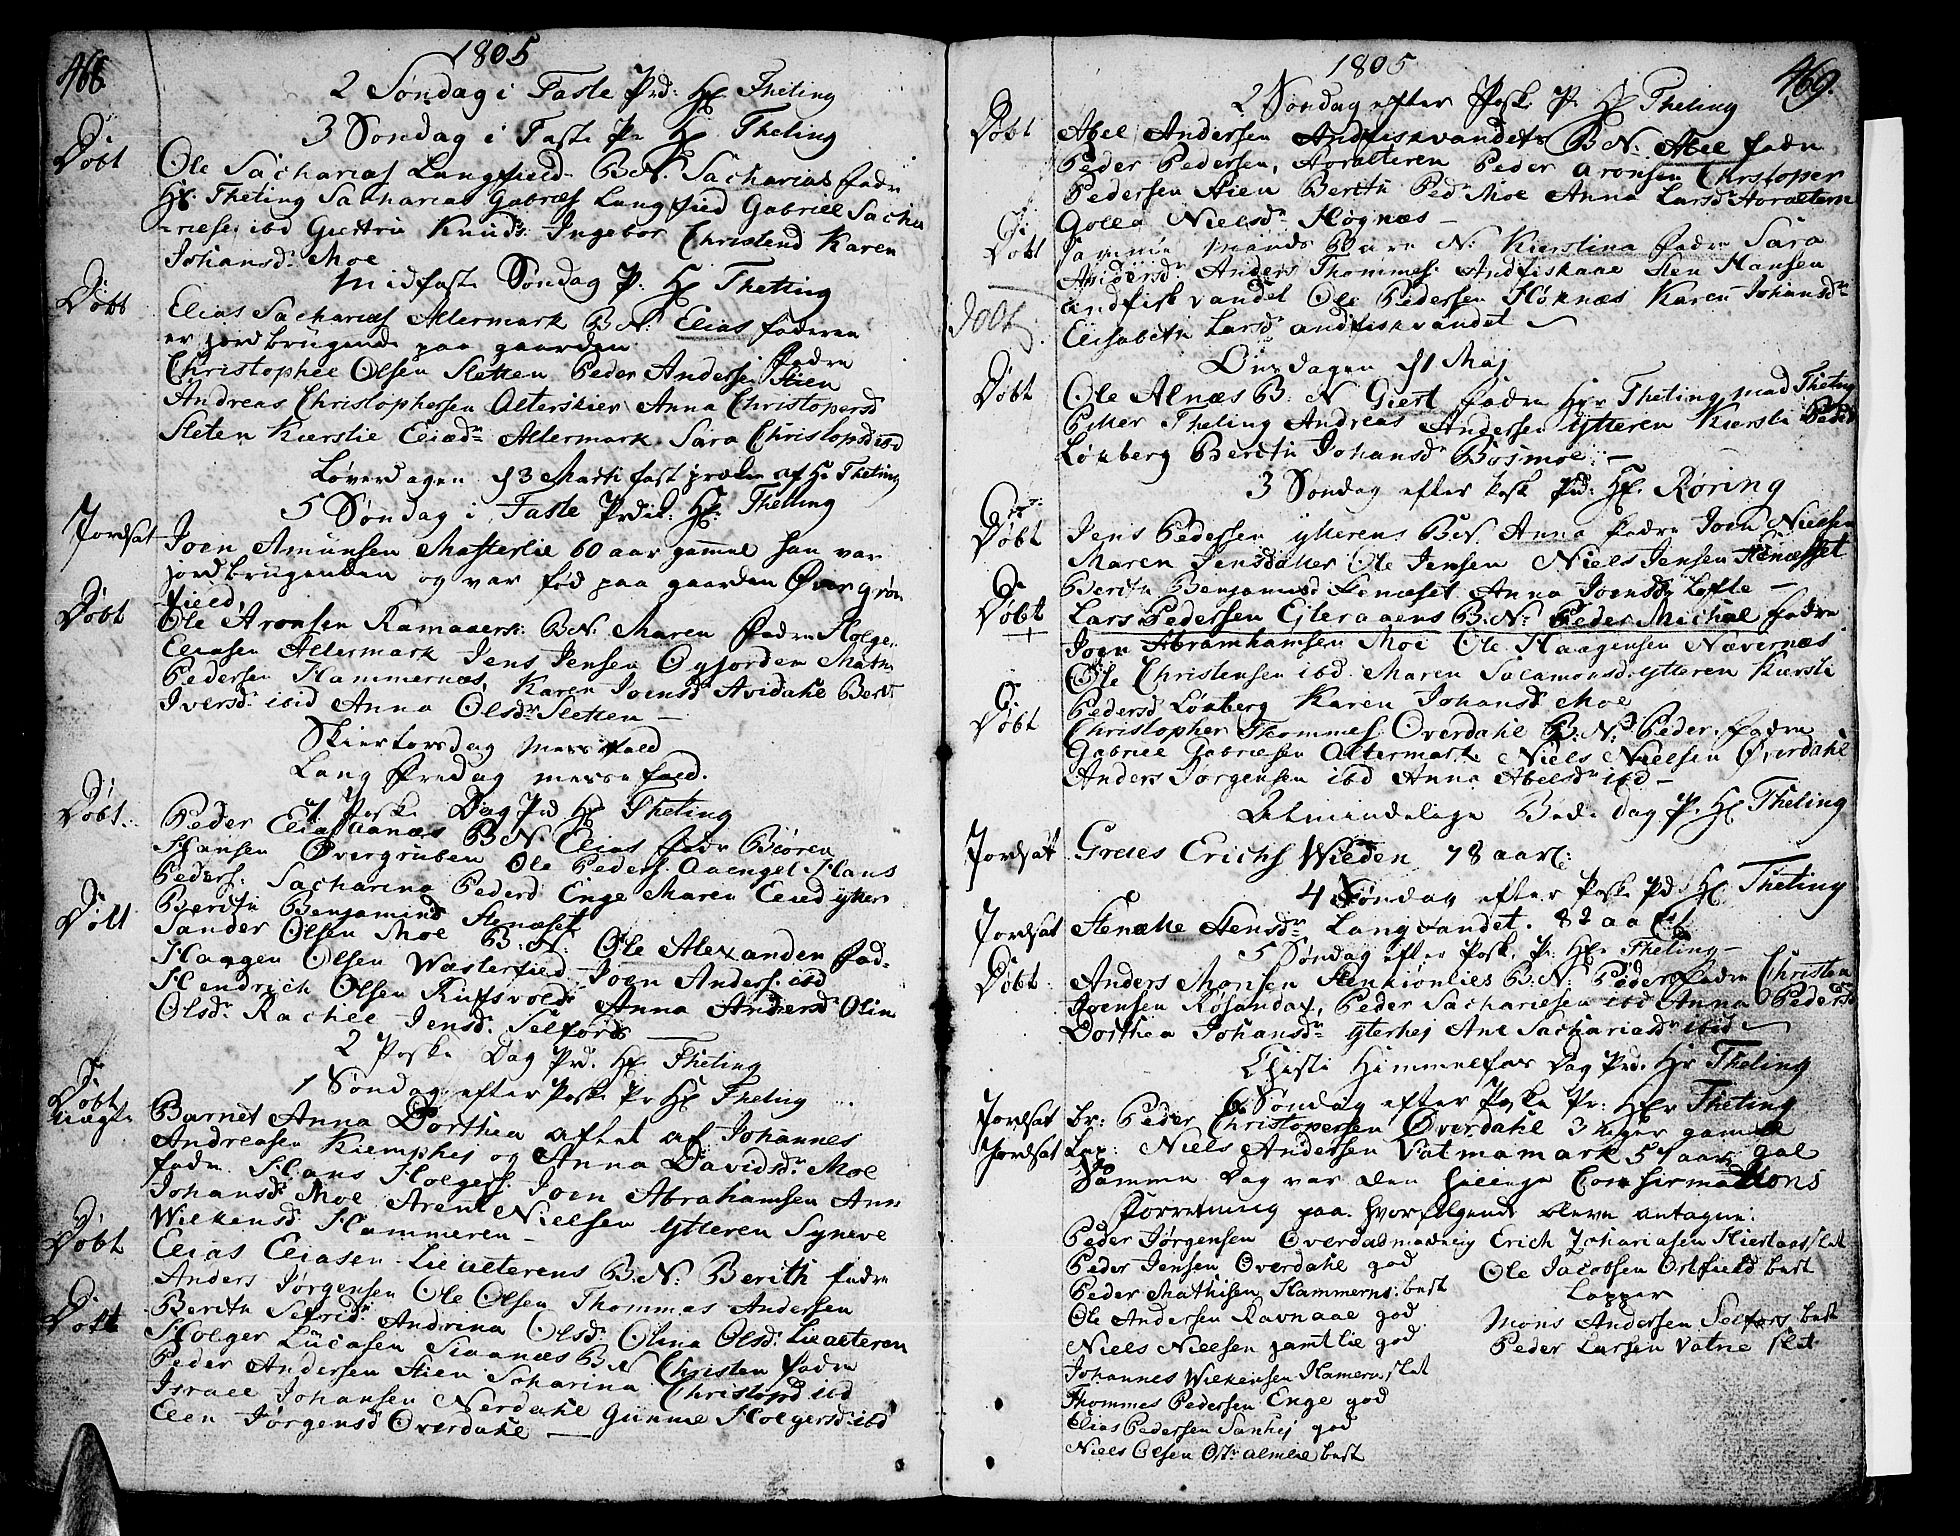 468
1805
2 Søndag i Faste Prd: Hr Theting
3 Søndag i Faste Pr Hr Theting
Døbt
Ole Sacharias Langfield B.N. Sacharias fadr
Hr. Theting Sacharias Gabriels Langfied Gabriel Sacha
riese ibd Giertru Knuds: Ingebor Christend Karen
Johansdr Moe
Midfaste Søndag P: Hr Theting
Døbt
Elias Sacharias Altermark B.N: Elias faderen
er jordbrugende paa gaarden fadre
Christopher Olsen Sletten Peder Andersen Stien
Andreas Christophersen Alterskier Anna Christopersd
Sleten Kierstie Eliædr Altermark Sara Christopsd ibd
Løverdagen d 3 Marti fast præken af Hr Theting
5 Søndag i Faste Prdik: Hr: Theting
Jordsat
Joen Amunsen Masterlie 60 aar gammel han var
jordbrugenden og var fød paa gaarden Øvergrøn
field
Døbt
Ole Aronsen Ramaaers: B.N. Maren fadre Holge
Eliasen Altermark Jens Jensen Øyjorden Math
Pedersen Hammernæs, Karen Joensd Avidahl Berit
Iversdr ibid Anna Olsdr Sletten
Skiertorsdag Messefald
Lang Fredag messe fald.
1 Poske Dag Prd Hr Theting
Døbt
Peder Elias Aanæs B.N. Elias fadr Biøren
Hansen Overgruben Ole Peders. Aaenget Hans
Peders: Sacharina Pederd Enge Maren Elied ytter
Berith Benjamind Stenæset
Døbt
Sander Olsen Moe B.N: Ole Alexanden fad
Haagen Olsen Wæsterfied Joen Anders. ibd
Hendrich Olsen Ruffsvold Anna Andersd Olin
Olsdr Rachel Jensd. Selfords
2 Poske Dag Prd. Hr Theting
1 Søndag efter Poske Pr Hr Theting
Døbt
Uægte
Barnet Anna Dorthea aflet af Johannes
Andreasen Kiemphej og Anna Davidsdr Moe
fadr. Hans Holgers. Joen Abrahamsen Ann
Johansdr Moe Arent Nielsen Ytteren Syneve
Wilkensd Hammeren
Døbt
Elias Eliasen Lialterens B.N: Berith fadre
Anders Jørgensen Ole Olsen Thommas Andersen
Berith Sefridr Andrina Olsdr Olina Olsd: Lialteren
Døbt
Holger Lucasen Sivanæs B N Christen fadre
Peder Andersen Stien Scharina Christopd ibd
Israel Johansen Nerdahl Gunnil Holgersd ibd
Elen Jørgensd Overdahl
1805
469.
2 Søndag efter Poske P: Hr Theting
Døbt
Abel Andersen Andfiskvandets B N: Abel fadr
Peder Pedersen, Horalteren Peder Aronsen Christoper
Pedersen Stien Berith Pedr Moe Anna Larsd Horaltern
Golla Nielsdr Høgnæs
Døbt
Samme Mands Barn N: Kierstina fadre Sara
Anders Thommes: Andfiskaae Sten Hansen
andfiskvandet Ole Pedersen Høknæs Karen Johansdr
Døbt
Elisabeth Larsd andfiskvandet
Onsdagen d 1 Maj
Døbt
Ole Alnæs B: N Giert fadre Hr Theting, mad Theting
Petter Theling Andreas Andersen Ytteren Kiersti Pedsd
Lønberg Berith Johansdr Bosmoe
3 Søndag efter Posk Prd: Hr. Røring
Døbt
Jens Pedersen ytterens B.N. Anna fadre Joen Nielsen
Maren Jensdatter Ole Jensen Niels Jensen Stenæsset
Berith Benjamind Stenæset Anna Joensdr Løfte
Døbt
Lars Pedersen Ejteraaens B.N: Peder Michal fadre
Joen Abramhamsen Moe Ole Haagensen Nævernæs
Ole Christensen ibd. Maren Salamonsd: Ytteren Kiersti
Pedersd Lønberg Karen Johansd Moe
Døbt
Christopher Thommes Overdahl B.N: Peder fadre
Gabriel Gabrielsen Altermark Niels Nielsen Øverdahl
Anders Jørgensen ibd Anna Abelsdr ibd
Almindelige Bede dag P. Hr Theting
Jordsat
Greles Erichs Wieden 78 aarl:
4 Søndag efter Poske Prd: Hr Theting
Jordsat
Stenække Hensdr Langvandet. 82 aa
5 Søndag efter Posk. P. Hr Theting
Døbt
Anders Monsen Stenkionlies B.N: Peder fadre Christen
Joensen Røsandax, Peder Sachariesen ibd Anna Pedersd
Dorthea Johansdr Yterhej Ane Sachariasdr ibid
Christi Himmelfar Dag Prd. Hr Theting
6 Søndag efter Poske Pr: Hr Theting
Jordsat
Br: Peder Christopersen Øverdahl 3 uger gamel
Jordsat
Lap: Niels Andersen Vatmamark 54 aar gal
Samme Dag var den hellige Confirmations
Forretning paa hvorfølgende bleve antagne:
Peder Jørgensen Overdal maadelig
Peder Jensen Overdahl god
Peder Mathisen Hammerns: best
Ole Andersen Ravnaae god
Niels Nielsen Jamtlie god
Johannes Wilkensen Hamern slet
Thommes Pedersen Enge god
Elias Pedersen Sanhej god
Niels Olsen Østr almlie best
Erich Zohariasen Hierlaas slet
Ole Jacobsen Ostfield best
Lapper
Mons Andersen Selfors best
Peder Larsen Vatne slet